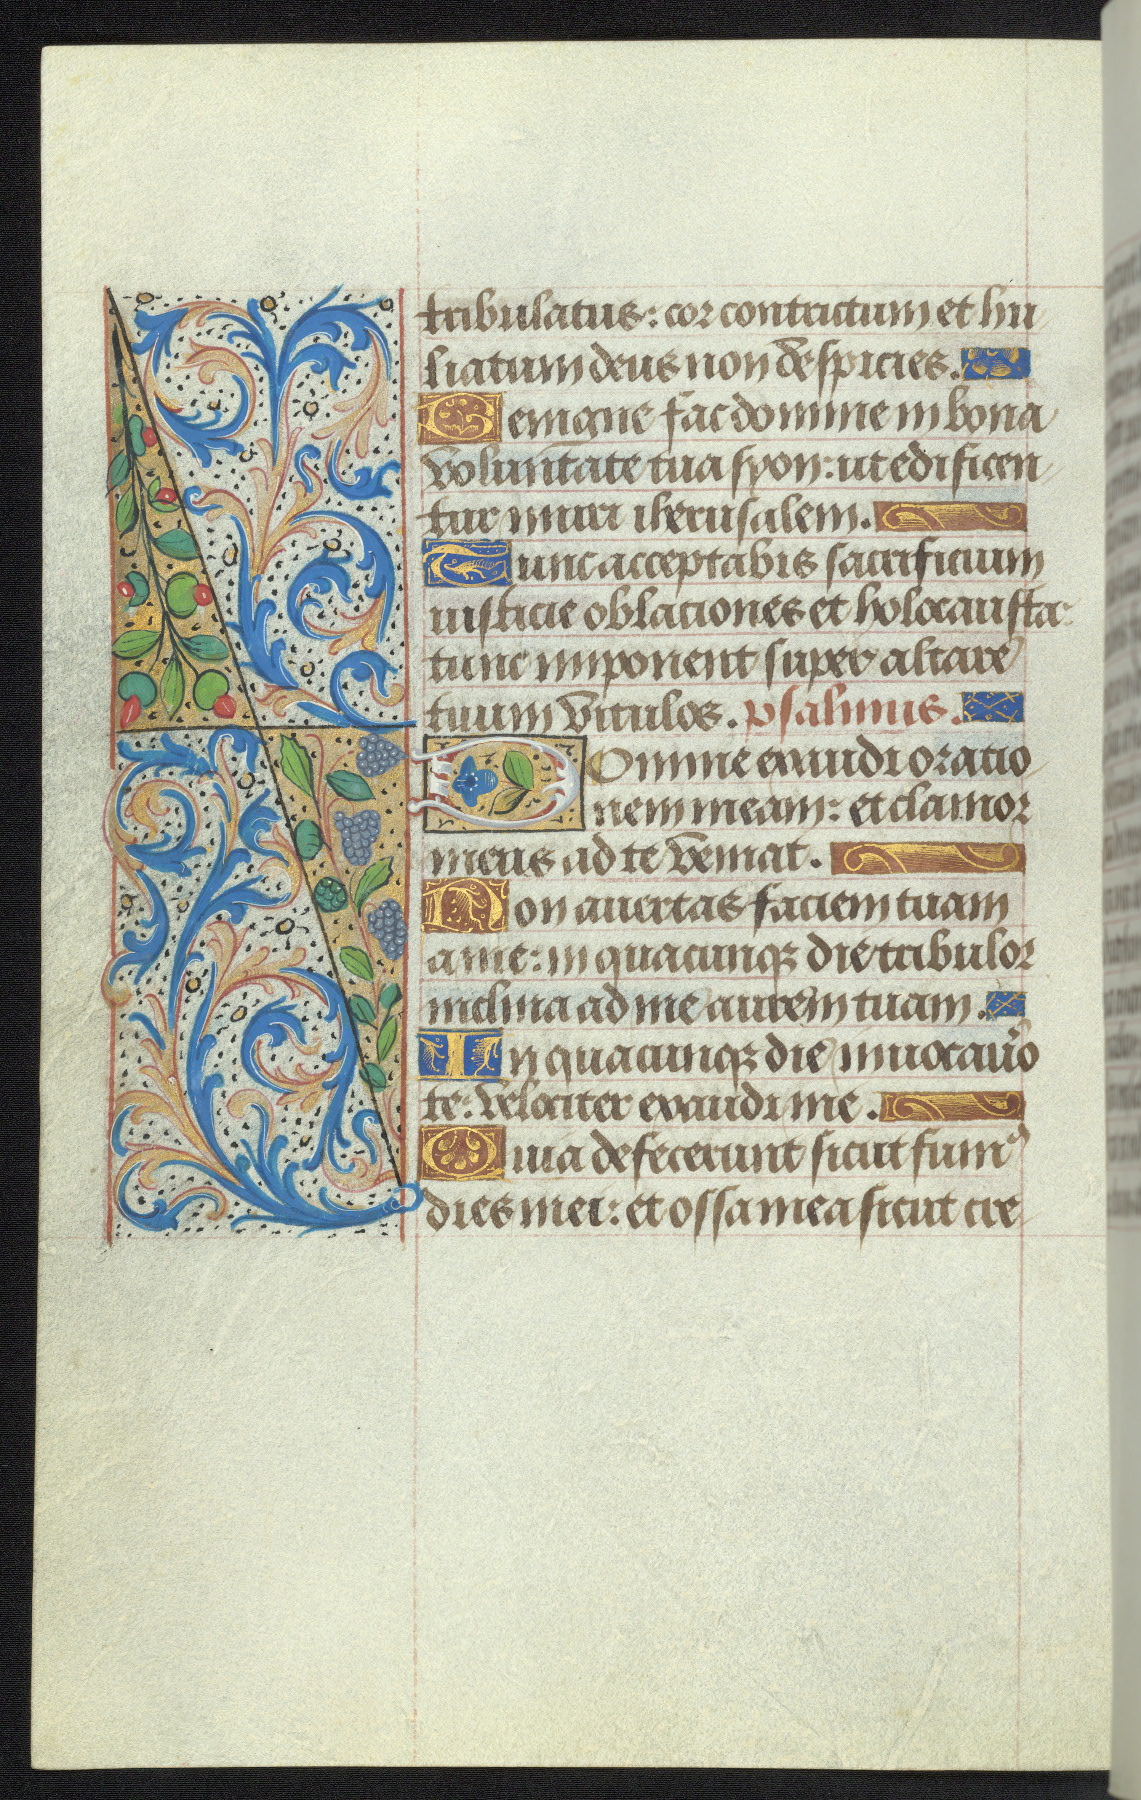 tribulatus: cor contritum et hu
liatum deus non despicies.
Benigne fac domine in bona
voluntate tua syon: ut edificen
tur muri iherusalem.
Tunc acceptabis sacrificium
iusticie oblaciones et holocausta:
tunc imponent super altare
tuum vitulos. psalmus.
Domine exaudi oratio
nem meam: et clamor
meus ad te veniat.
Non avertas faciem tuam
a me: in quacunqꝫ die tribulor
inclina ad me aurem tuam.
In quacunqꝫ die invocav̾o
te: velociter exaudi me.
Quia defecerunt sicut fumꝰ
dies mei: et ossa mea sicut cre